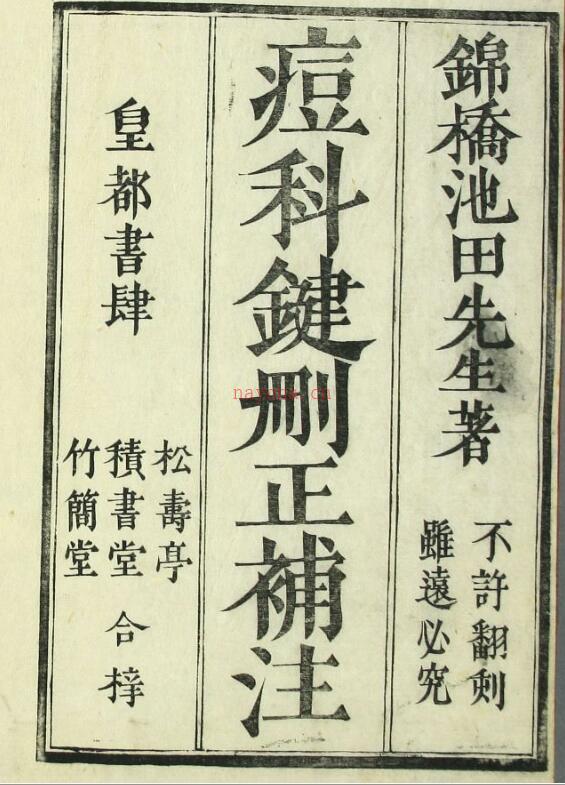 錦橋池田先生著
不許翻刻
雖遠必究
痘科鍵刪正補注
皇都書肆
松壽亭
積書堂
竹簡堂
合梓
nayona.cn